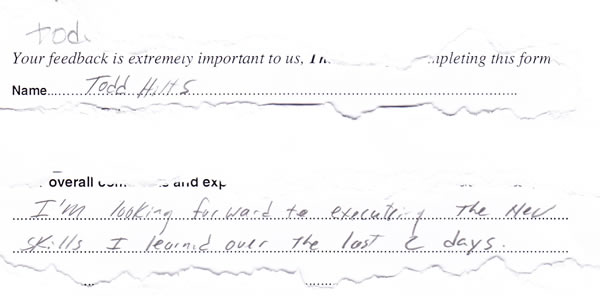 tod.
Your feedback is extremely important to us, pleting this form
Name......Todd Hilts
overall and exp
I'm looking forward to executing the new
skills I learned over the last 2 days.